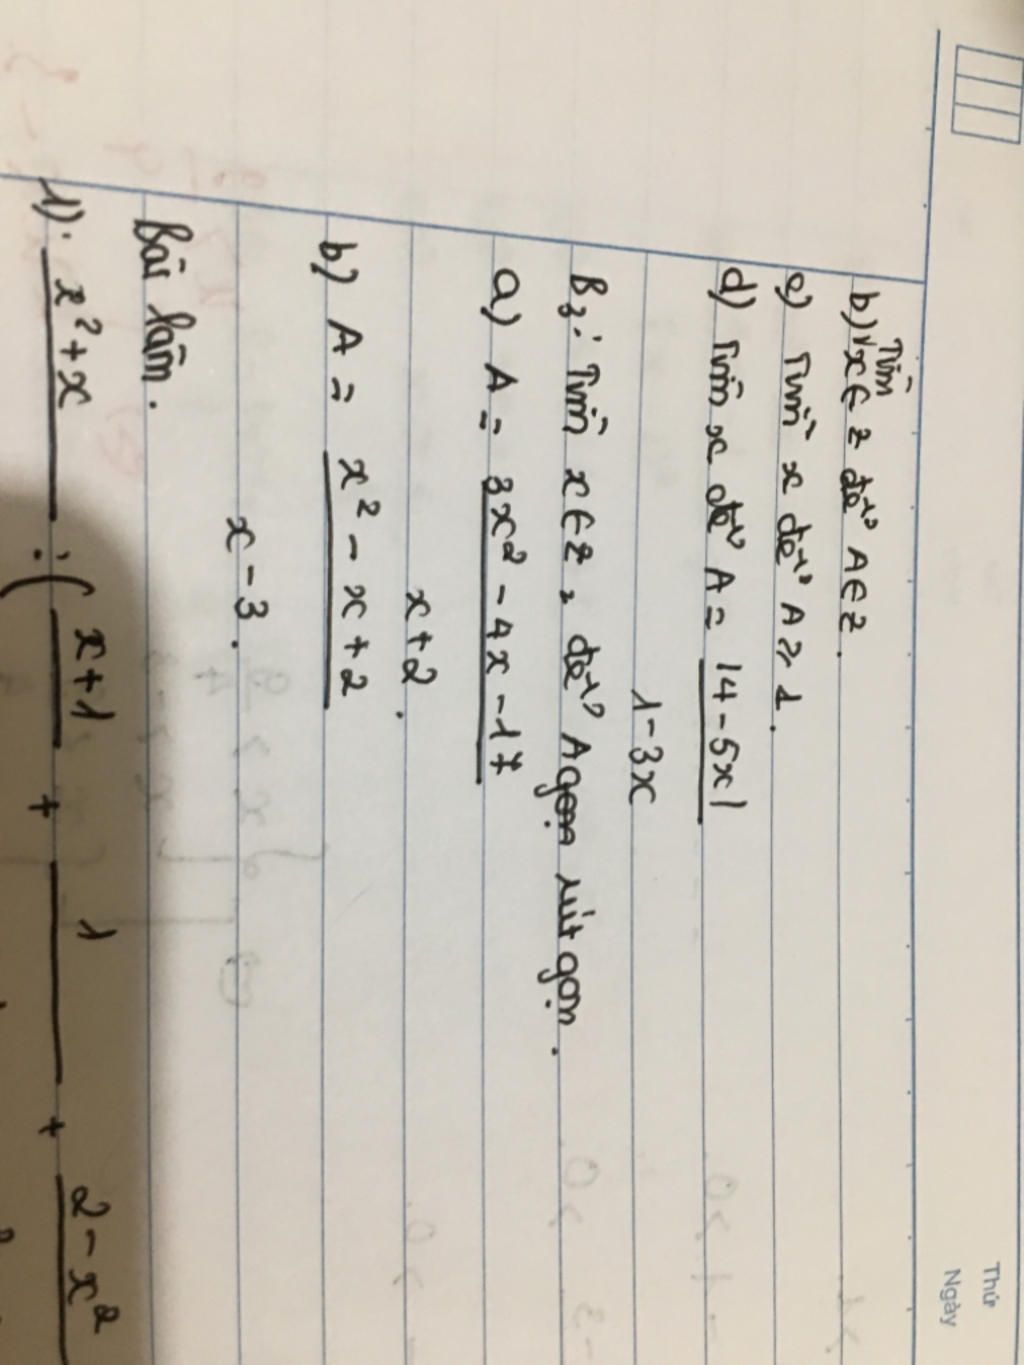 Thứ
Ngày
b) Tìm x ∈ Z để A ∈ Z.
c) Tìm x để A ≥ 1.
d) Tìm x để A = |4-5x|
1-3x
B3: Tìm x ∈ Z, để A gọn rút gọn.
a) A = 3x² - 4x - 17
x+2.
b) A = x² - x + 2
x - 3.
Bài làm.
1). x² + x : ( x+1 + 1 + 2 - x²